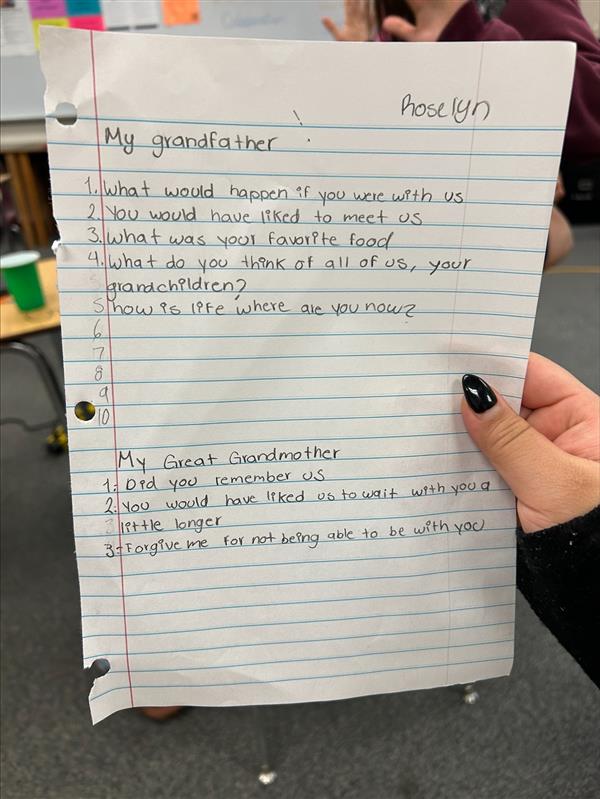 Roselyn
My grandfather
1. What would happen if you were with us
2. You would have liked to meet us
3. what was your favorite food
4. What do you think of all of us, your
grandchildren?
5 how is life where are you now?
6
7
8
9
10
My Great Grandmother
1. Did you remember us
2. You would have liked us to wait with you a
little longer
3-Forgive me for not being able to be with you